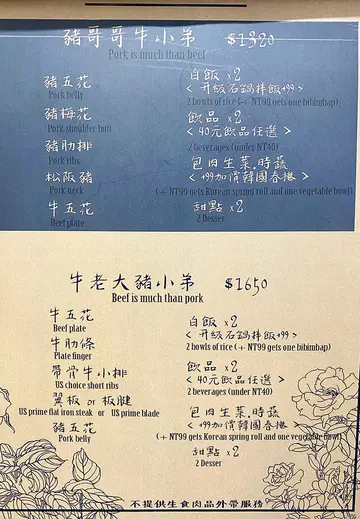 豬哥哥牛小弟 $1320
Pork is much than beef
豬五花
Pork belly
豬梅花
Pork shoulder butt
豬肋排
Pork ribs
松阪豬
Pork neck
牛五花
Beef plate
白飯 x2
< 升級石鍋拌飯+99 >
2 bowls of rice (+ NT99 gets one bibimbap)
飲品 x2
< 40元飲品任選 >
2 beverages (under NT40)
包肉生菜.時蔬
< +99加價韓國春捲 >
(+ NT99 gets Korean spring roll and one vegetable bowl)
甜點 x2
2 Desser
牛老大豬小弟 $1650
Beef is much than pork
牛五花
Beef plate
牛肋條
Plate finger
帶骨牛小排
US choice short ribs
翼板 or 板腱
US prime flat iron steak or US prime blade
豬五花
Pork belly
白飯 x2
< 升級石鍋拌飯+99 >
2 bowls of rice (+ NT99 gets one bibimbap)
飲品 x2
< 40元飲品任選 >
2 beverages (under NT40)
包肉生菜.時蔬
< +99加價韓國春捲 >
(+ NT99 gets Korean spring roll and one vegetable bowl)
甜點 x2
2 Desser
不提供生食肉品外帶服務